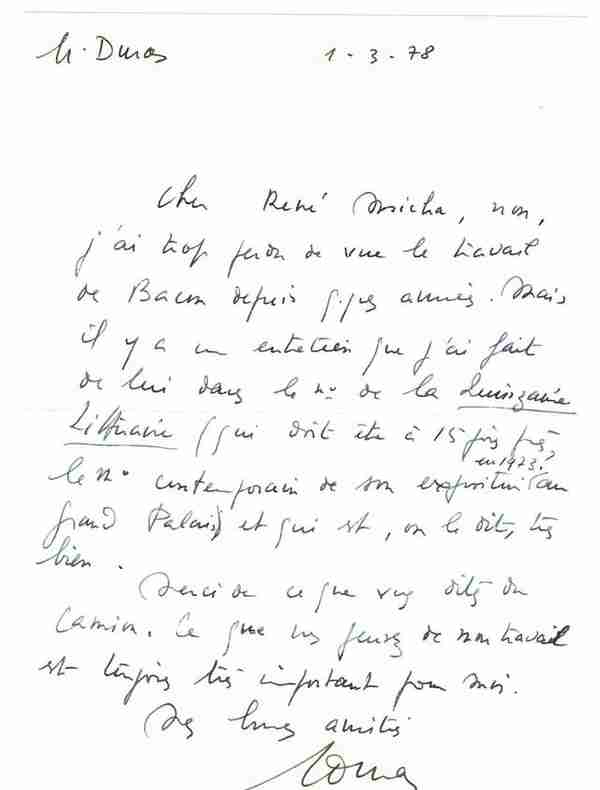 M. Duras 1-3-78
Cher René Micha, non,
j'ai trop perdu de vue le travail
de Bacon depuis qques années. Mais
il y a un entretien que j'ai fait
de lui dans le no de la Quinzaine
Littéraire (qui doit être à 15 jours près
en 1973?
le no contemporain de son exposition (au
Grand Palais) et qui est, on le dit, très
bien.
Merci de ce que vous dites du
Camion. Ce que vous pensez de mon travail
est toujours très important pour moi.
Mes amitiés